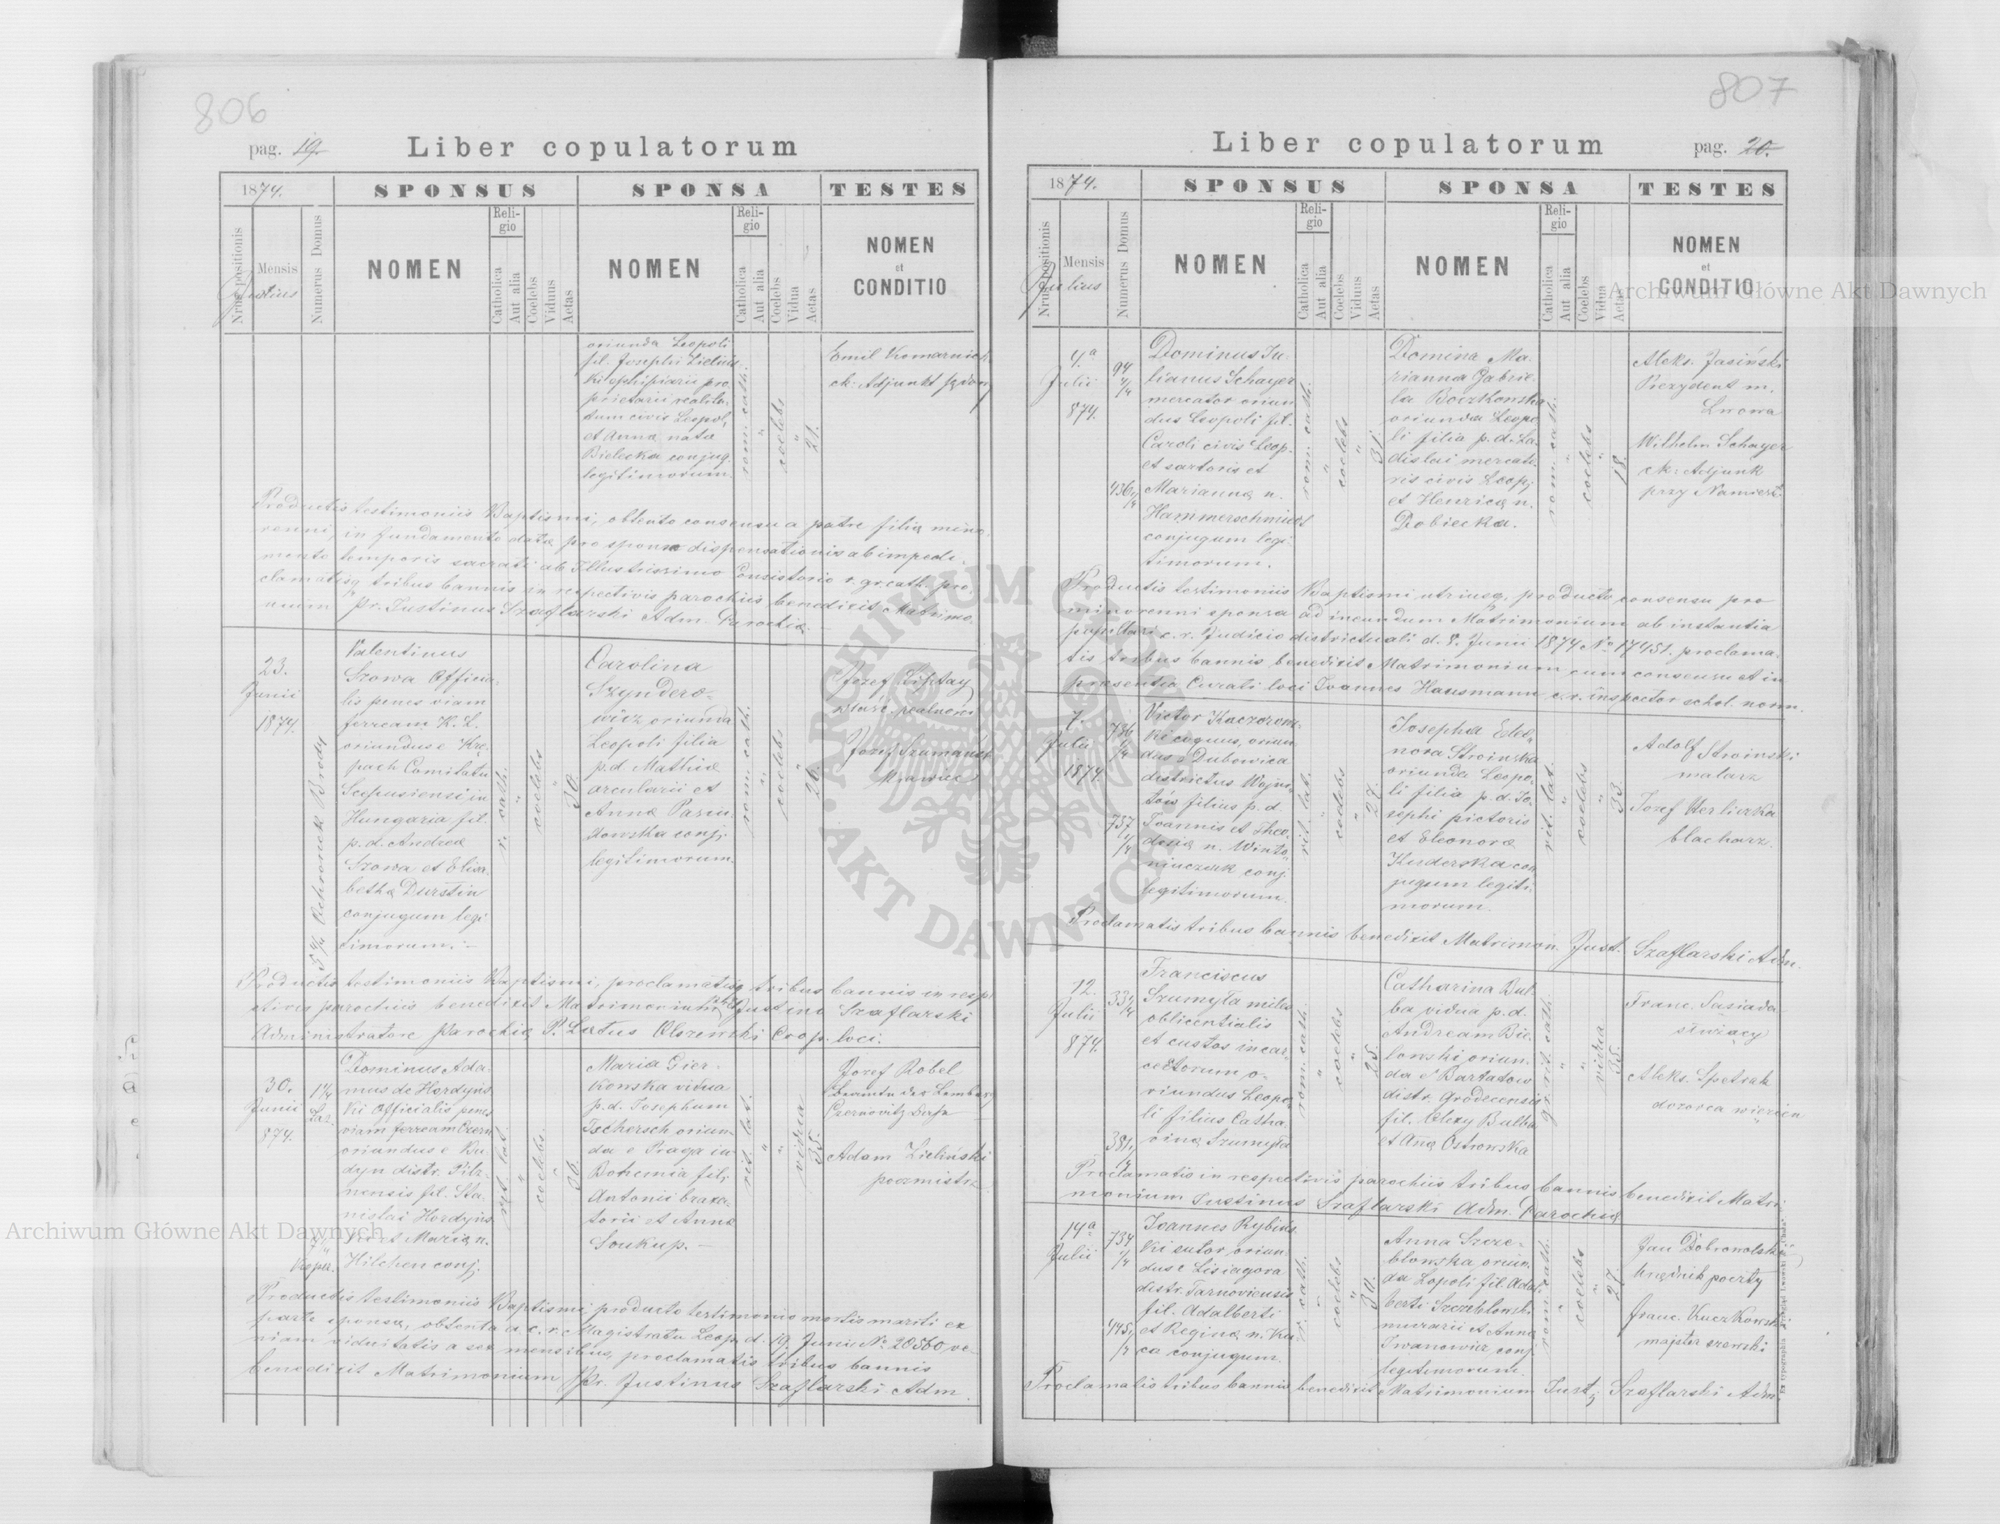 806
pag. 19.
Liber copulatorum
1874.
SPONSUS
SPONSA
TESTES
Nrus positionis
Mensis
Junius
Numerus Domus
NOMEN
Religio
Catholica
Aut alia
Coelebs
Viduus
Aetas
NOMEN
Religio
Catholica
Aut alia
Coelebs
Vidua
Aetas
NOMEN
et
CONDITIO
oriunda Leopoli
fil. Josephi
prietarii realita-
tum civis Leopol,
et Anna nata
Bielecka conjug.
legitimorum.
rom. cath.
coelebs
21.
Emil Komarnick
ck. Adjunkt
Productis testimoniis Baptismi, obtento consensu a patre filiæ mino-
renni, in fundamento datæ pro sponsa dispensationis ab impedi-
mento temporis sacrati ab Illustrissimo Consistorio r. gr cath. pro-
clamatisq tribus bannis in respectivis parochiis benedixit Matrimo-
nium Pr. Justinus Szaflarski Adm. Parochiæ.
23.
Junii
1874.
Valentinus
Szowa Officia-
lis penes viam
ferream K. L.
oriundus e
pach Comitatu
Scepusiensi in
Hungaria fil.
p. d. Andreæ
Szowa et Elisa-
betha Durstin
conjugum legi
timorum.
r. cath.
coelebs
30.
Carolina
Szyndero-
wicz oriunda
Leopoli filia
p. d. Mathiæ
arcularii et
Anna
kowska conj.
legitimorum.
rom. cath.
coelebs
20.
Józef
Józef
Krawiec
Productis testimoniis Baptismi, proclamatisq tribus bannis in resp-
ctivis parochiis benedixit Matrimonium Justino Szaflarski
Administratore parochiæ P. Latus Olszewski Coop. loci.
30.
Junii
874.
1 4/4
Dominus Ada-
mus de Hordyńs
kii Officialis penes
viam ferream Czern
oriundus e
dyn distr. Pilz-
nensis fil. Sta-
nislai Hordyńs
kii et Mariæ n.
Hilchen conj.
ryt. lat.
coelebs.
30.
Maria Gier-
kowska vidua
p. d. Josephum
Tschersch oriun-
da e Praga in
Bohemia fil.
Antonii braxa-
torii et Anna
Soukup.
rit. lat.
vidua
35.
Józef Robel
Beamte der Lemberg
Czernovitz
Adam Zieliński
poczmistrz
Productis testimoniis Baptismi producto testimonio mortis mariti ex
parte sponsæ, obtenta a c. r. Magistratu Leop. d. 19. Junii No 20560 ve-
niam viduitatis a sex mensibus, proclamatis tribus bannis
benedixit Matrimonium Pr. Justinus Szaflarski Adm.
807
Liber copulatorum
pag. 20.
1874.
SPONSUS
SPONSA
TESTES
Nrus positionis
Mensis
Julius
Numerus Domus
NOMEN
Religio
Catholica
Aut alia
Coelebs
Viduus
Aetas
NOMEN
Religio
Catholica
Aut alia
Coelebs
Vidua
Aetas
NOMEN
et
CONDITIO
4.a
Julii
874.
94 4/4
436 4/4
Dominus Ju-
lianus Schayer
mercator oriun
dus Leopoli fil.
Caroli civis Leop.
et sartoris et
Marianna n.
Hammerschmiedt
conjugum legi
timorum.
rom. cath.
coelebs
31.
Domina Ma-
rianna Gabrie-
la Boczkowska
oriunda Leopo
li filia p. d. La-
dislai mercato-
ris civis Leop.
et Henrica n.
Dobiecka.
rom. cath.
coelebs
18.
Aleks. Jasiński
Prezydent m.
Lwowa
Wilhelm Schayer
ck: Adjunk
przy Namiest.
Productis testimoniis Baptismi utriusq, producto consensu pro
minorenni sponsa ad ineundum Matrimonium ab instantia
pupillari c. r. Judicio districtuali d. 8. Junii 1874 No 17451. proclama-
tis tribus bannis benedixit Matrimonium cum consensu et in
præsentia Curati loci Joannes Hausmann, c. r. inspector schol. norm.
7.
Julii
1874.
736 4/4
737 4/4
Victor Kaczorow-
ski coquus, oriun
dus Dubowica
districtus Wojni-
tów filius p. d.
Joannis et Theo-
dosia n. Winto-
niuczuk conj.
legitimorum.
rit. lat.
coelebs
27.
Josepha Eleo-
nora Stroińska
oriunda Leopo-
li filia p. d. Jo-
sephi pictoris
et Eleonoræ
Kuderska con
jugum legiti-
morum.
rit. lat.
coelebs
33.
Adolf Stroinski
malarz
Józef Herliczka
blacharz.
Proclamatis tribus bannis benedixit Matrimon. Just. Szaflarski Adm.
12.
Julii
874.
33 4/4
381 4/4
Franciscus
Szumyła miles
oblicentialis
et custos incar-
ceratorum o-
riundus Leopo-
li filius Catha
rina Szumyła
rom. cath.
coelebs
25.
Catharina Bul-
ba vidua p. d.
Andream Bie-
lowski oriun-
da e Bartatow
distr. Grodecensis
fil. Alexy Bulba
et Ana Ostrowska
gr. rit. cath
vidua
35.
Franc. Sasiada
Aleks.
dozorca więzien
Proclamatis in respectivis parochiis tribus bannis benedixit Matri-
monium Justinus Szaflarski Adm. Parochiæ
14a
Julii
734 4/4
445 4/4
Joannes Rybids
kii sutor oriun
dus e Lisiagora
distr. Tarnoviensis
fil. Adalberti
et Regina n. Ku
ca conjugum.
r. cath.
coelebs
30.
Anna Szcze-
blowska oriun
da Lopoli fil. Adal
berti Szczeblowski
murarii et Anna
Iwanowicz conj.
legitimorum.
rom. cath.
coelebs
27.
Jan Dobrowolski
Urzędnik poczty
Franc. Kuczkowski
majster szewski
Proclamatis tribus bannis benedixit Matrimonium Just. Szaflarski Adm.
ARCHIWUM GŁÓWNE AKT DAWNYCH
Archiwum Główne Akt Dawnych
Archiwum Główne Akt Dawnych